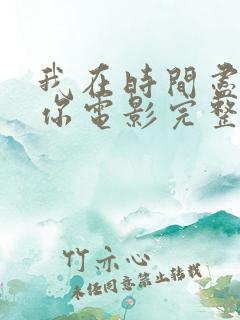 我在時間盡
你電影完整
竹亦心
未经同意禁止转载